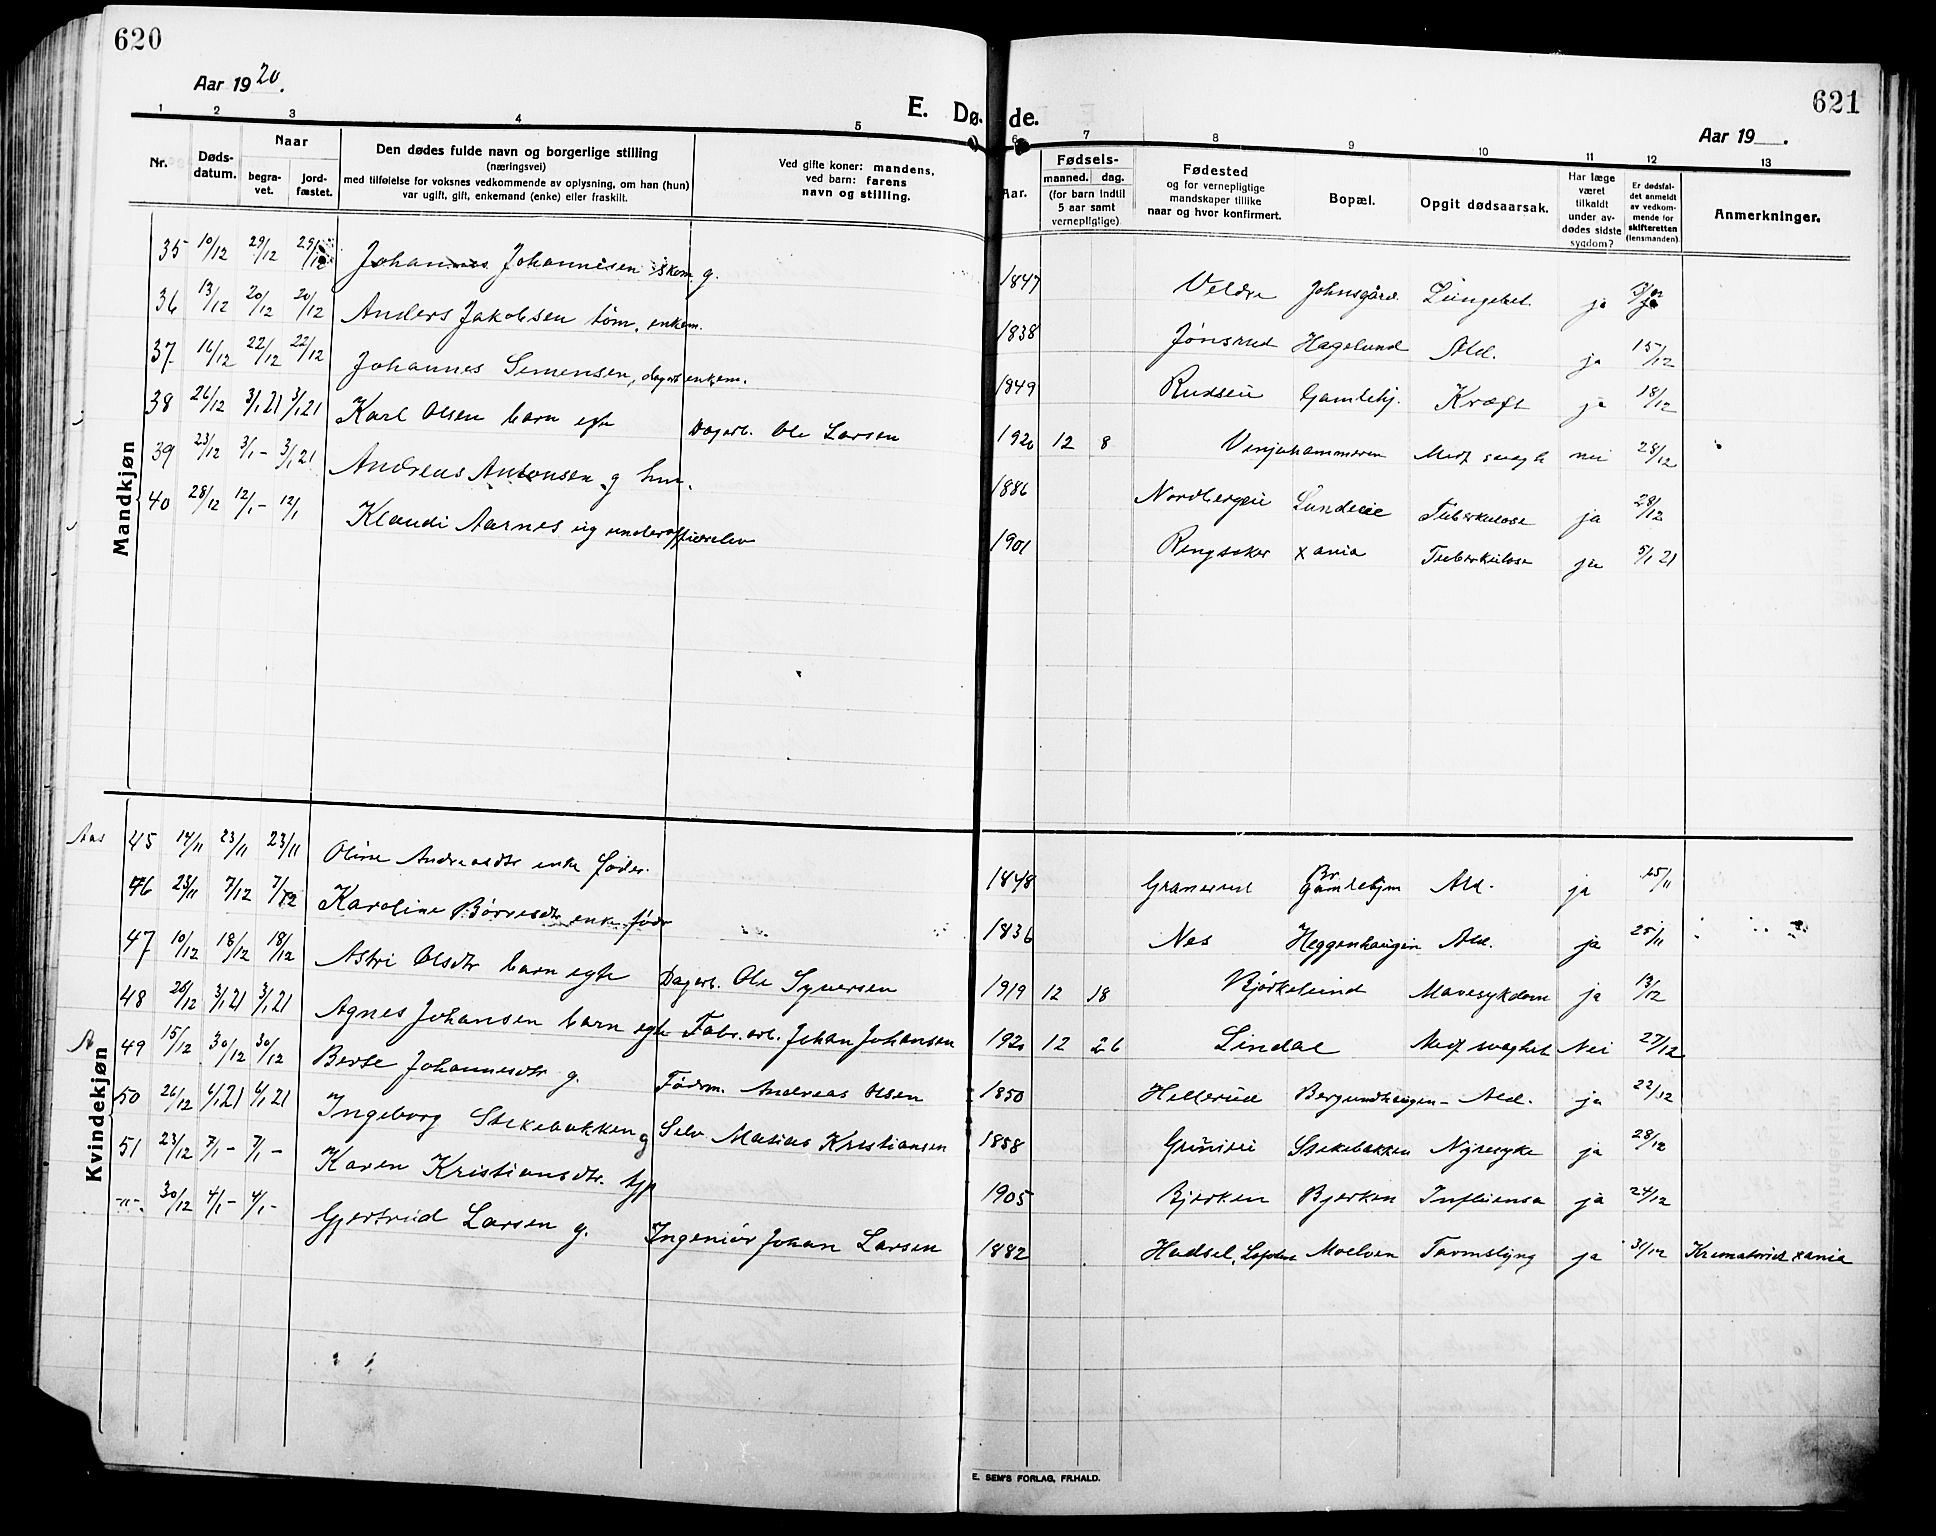 620
621
Aar 1920.
E. Døde.
Aar 19 .
1 2 3 4 5 6 7 8 9 10 11 12 13
Nr.
Døds-
datum.
Naar
begra-
vet.
jord-
fæstet.
Den dødes fulde navn og borgerlige stilling
(næringsvei)
med tilføielse for voksnes vedkommende av oplysning, om han (hun)
var ugift, gift, enkemand (enke) eller fraskilt.
Ved gifte koner: mandens,
ved barn: farens
navn og stilling.
Aar.
Fødsels-
maaned. dag.
(for barn indtil
5 aar samt
vernepligtige)
Fødested
og for vernepligtige
mandskaper tillike
naar og hvor konfirmert.
Bopæl.
Opgit dødsaarsak.
Har læge
været
tilkaldt
under av-
dødes sidste
sygdom?
Er dødsfal-
det anmeldt
av vedkom-
mende for
skifteretten
(lensmanden).
Anmerkninger.
Mandkjøn
35 10/12 29/12 29/12 Johannes Johannesen skom. g. 1847 Veldre Johnsgård. Lungebet. ja
36 13/12 20/12 20/12 Anders Jakobsen tøm. enkem. 1838 Jønsrud Hagelund Ald. ja 15/12
37 16/12 22/12 22/12 Johannes Semensen, dagarb enkem. 1849 Rudseie Gamlehj. Kræft ja 18/12
38 26/12 3/1 21 3/1 21 Karl Olsen barn egte Dagarb. Ole Larsen 1920 12 8 Venjohammeren Medf svagh nei 28/12
39 23/12 3/1 - 3/1 21 Andreas Antonsen g hm. 1886 Nordbergeie Lundeie Tuberkulose ja 28/12
40 28/12 12/1 - 12/1 Klaudi Aarnes ug underofficerelev 1901 Ringsaker xania Tuberkulose ja 5/1 21
Kvindekjøn
Aas 45 14/11 23/11 23/11 Oline Andreasdtr enke føder. 1848 Granerud Br. Gamlehjm Ald. ja 15/11
46 23/11 7/12 7/12 Karoline Børresdtr enke fødr 1836 Nes Heggenhaugen Ald. ja 25/11
47 10/12 18/12 18/12 Astri Olsdtr barn egte Dagarb. Ole Syversen 1919 12 18 Bjørkelund Mavesykdom ja 13/12
48 26/12 3/1 21 3/1 21 Agnes Johansen barn egte Fabr. arb. Johan Johansen 1920 12 26 Lindal Medf svaghet Nei 27/12
A 49 15/12 30/12 30/12 Berte Johannesdtr g. Fødrm. Andreas Olsen 1850 Hellerud Bergundhaugen - Ald. ja 22/12
50 26/12 6/1 21 6/1 21 Ingeborg Stekebakken g Selv Matias Kristiansen 1858 Gruneie Stekebakken Nyresyke ja 28/12
51 23/12 7/1 - 7/1 - Karen Kristiansdtr. tjp 1905 Bjerken Bjerken Influensa ja 24/12
-"-. 30/12 4/1 - 4/1 - Gjertrud Larsen g. Ingeniør Johan Larsen 1882 Hadsel, Lofoten Moelven Tarmslyng ja 31/12 Krematoriet xania
E. SEM'S FORLAG, FR.HALD.